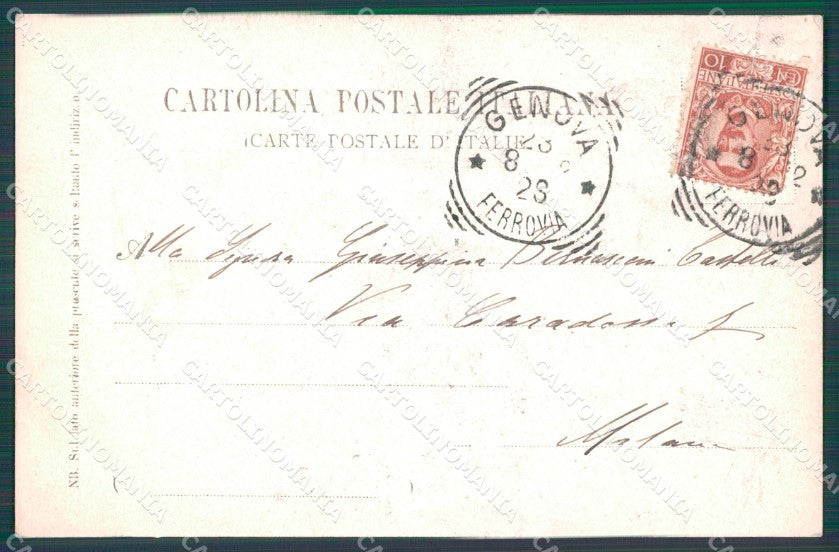 CARTOLINA POSTALE ITALIANA
(CARTE POSTALE D'ITALIE)
10
GENOVA
23
8 2
28
FERROVIA
GENOVA
23
8 2
FERROVIA
Alla Signora Giuseppina Castelli
Via Caradosso
Milano
NB. Sul lato anteriore della presente si scrive soltanto l'indirizzo.
CARTOLINOMANIA